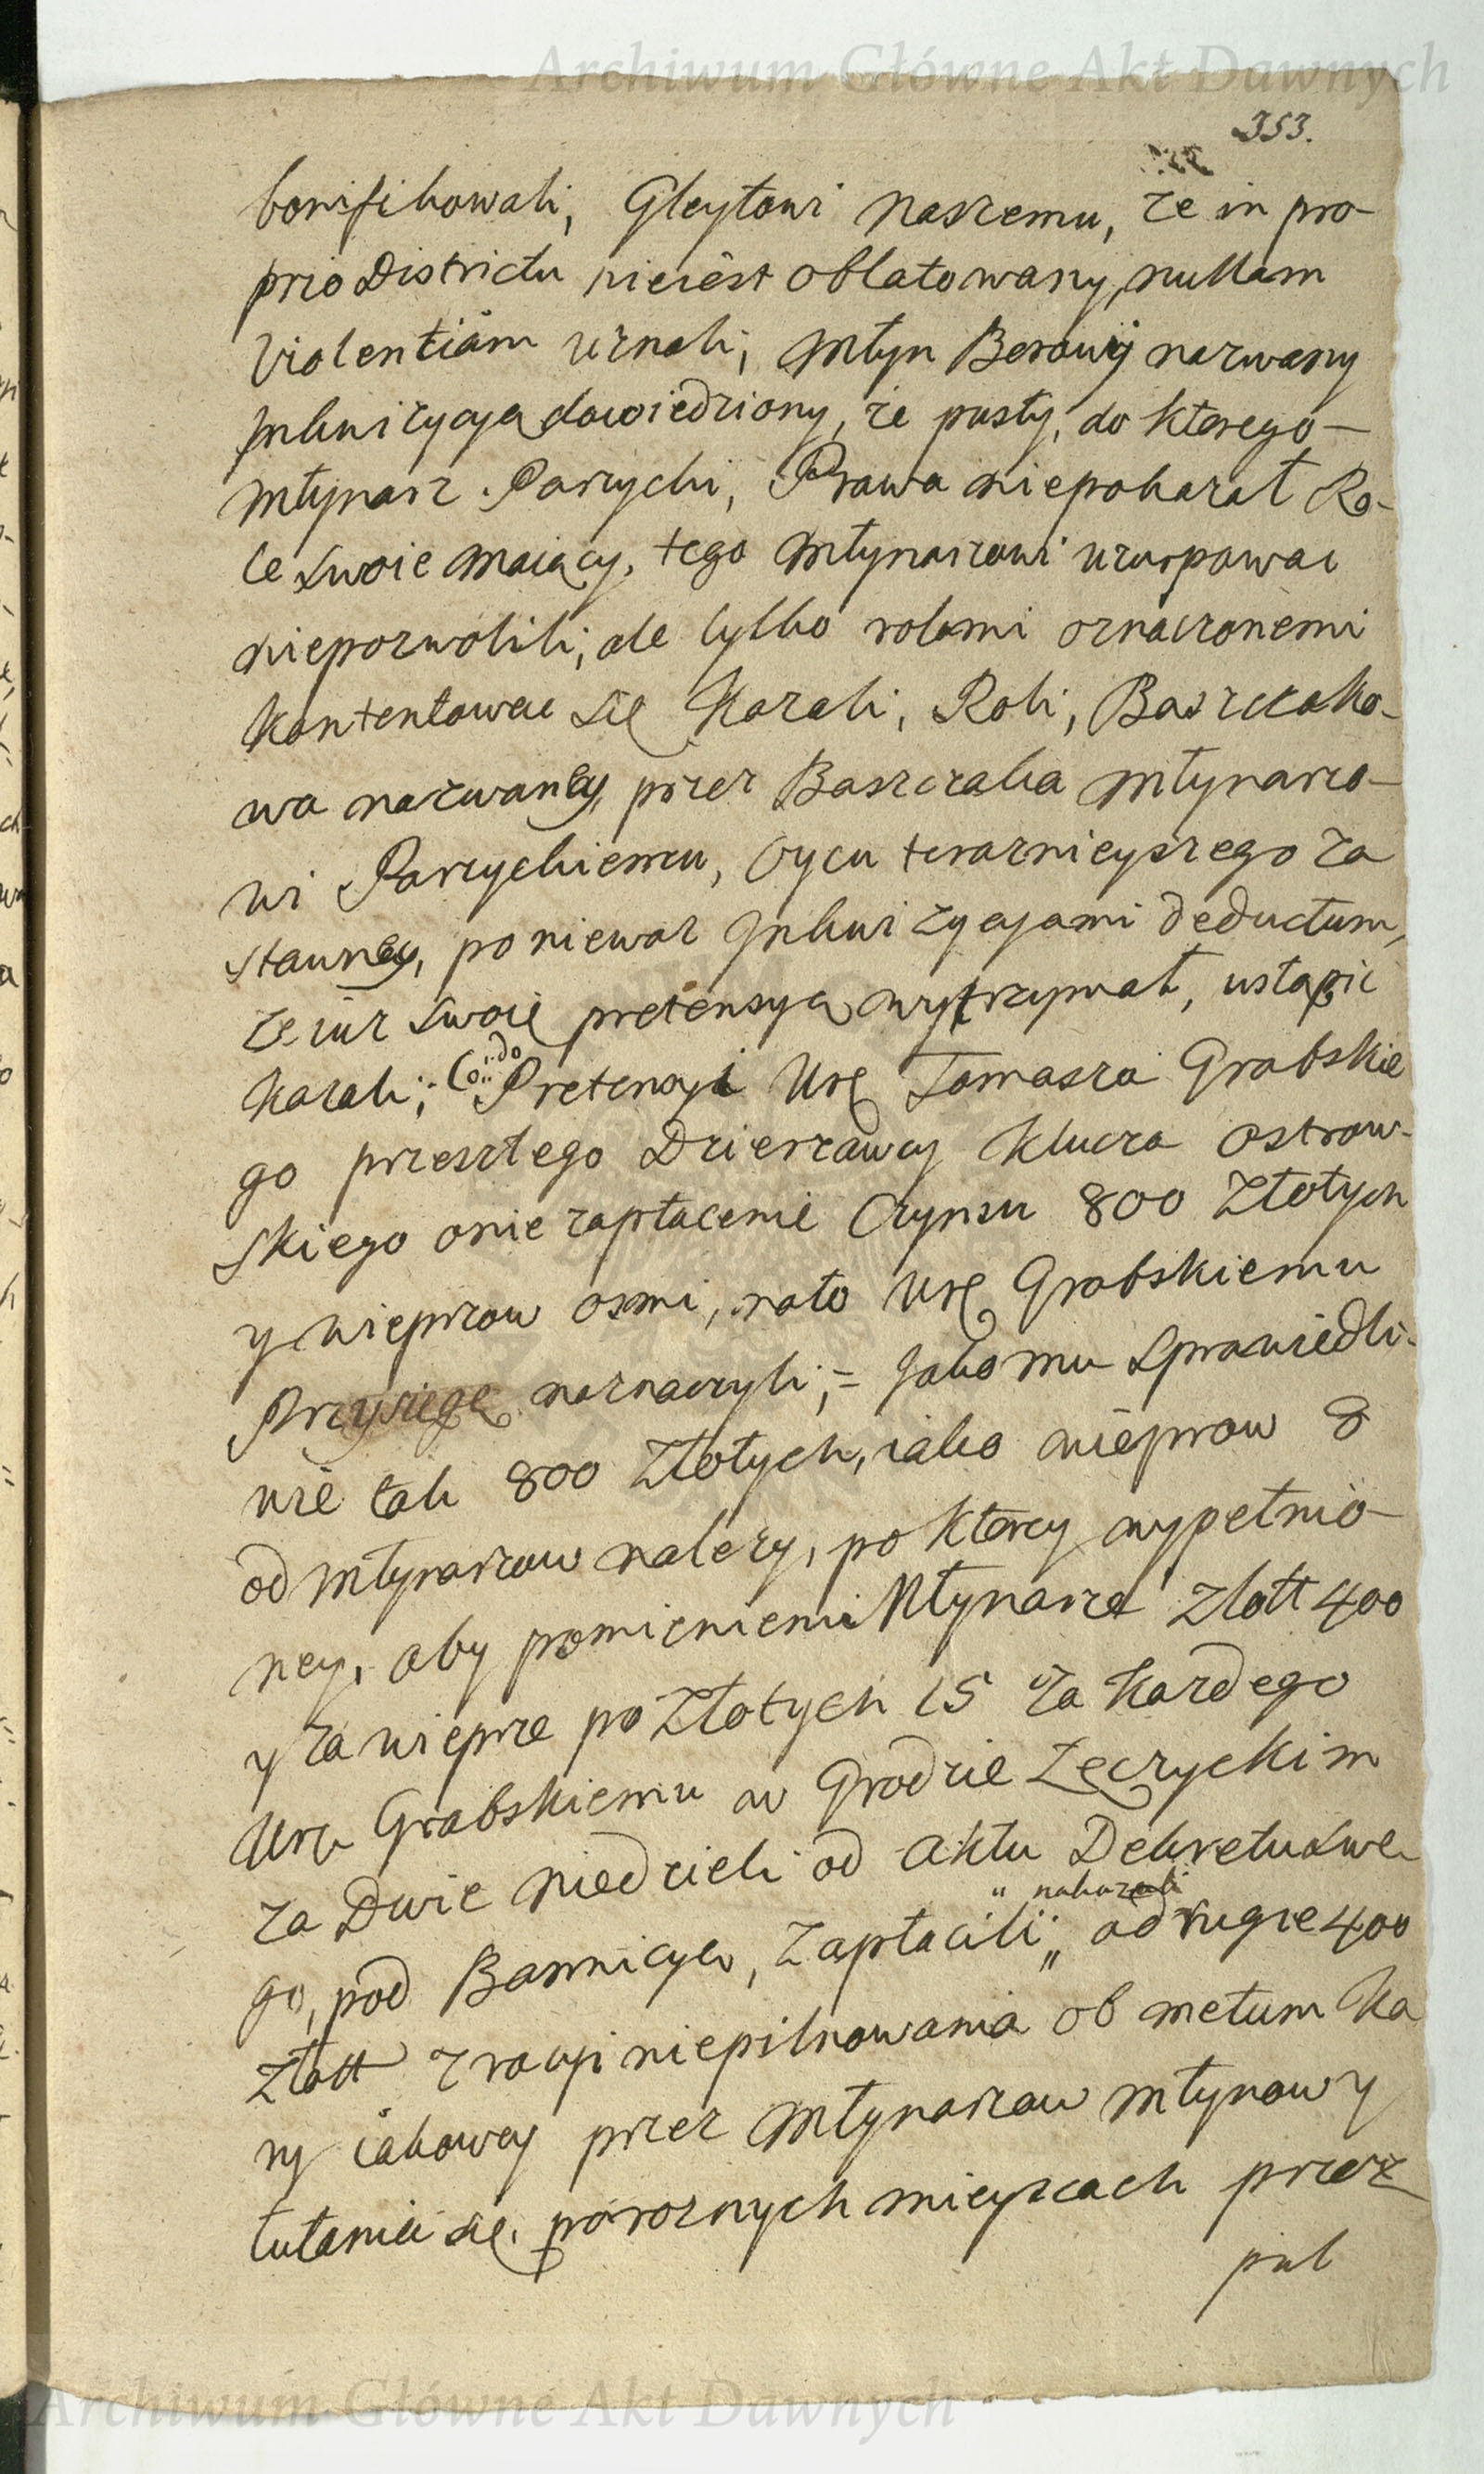 Archiwum Główne Akt Dawnych
353.
bonifikowali, Gleytowi naszemu, że in pro-
prio Districtu nieiest oblatowany, nullam
violentiam uznali, Młyn Borowy nazwany
Inkwizycyą dowiedziony, że pusty, do ktorego
Młynarz Parzychi, Prawa niepokazał Ro-
le swoie maiący, tego Młynarzowi uzurpowac
niepozwolili, ale tylko rolami oznaczonemi
kontentowac się kazali, Roli, Baszczako-
wa nazwaney, przez Baszczaka Młynarzo-
wi Parzychiemu, Oycu teraznieyszego za
stawney, poniewaz Inkwizycyami deductum,
że iuz swoię pretensyą wytrzymał, ustąpic
kazali; do Pretensyi Urę Tomasza Grabskie
go przeszłego Dzierzawcy Klucza Ostrow-
skiego o nie zapłacenie Czynszu 800 Złotych
y wieprzow osmi, na to Urę Grabskiemu
Przysięgę naznaczyli, = Jako mu sprawiedli-
wie tak 800 Złotych, iako wieprzow 8
od Młynarzow nalezy, po ktorey wypełnio-
ney, aby pomienieni Młynarze Złott 400
y za wieprze po Złotych 15 za kazdego
Urę Grabskiemu w Grodzie Łęczyckim
za Dwie niedzieli od aktu Dekretu swe
go, pod Bannicyą, zapłacili „ nakazali
od drugie 400
Złott z racyi niepilnowania ob metum ka
ry iakowey przez Młynarzow Młynow y
tułania się po roznych mieyscach przez
pul
Archiwum Główne Akt Dawnych